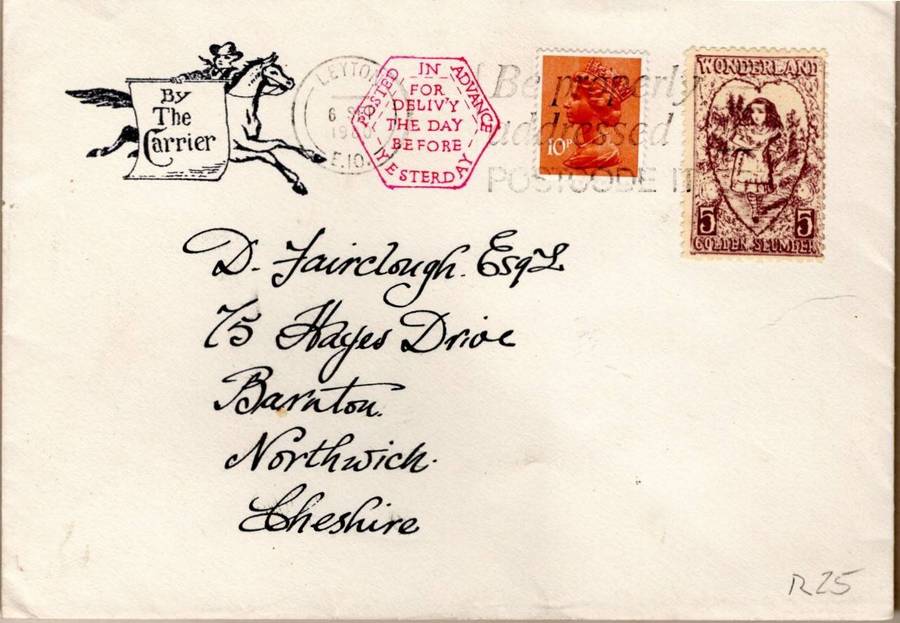 By
The
Carrier
LEYTON
E.10.
POSTED IN ADVANCE
FOR
DELIV'Y
THE DAY
BEFORE
YESTERDAY
Be properly
addressed
POSTCODE IT
10P
WONDERLAND
5 5
GOLDEN SLUMBER
D. Fairclough. Esq.
75 Hayes Drive
Barnton.
Northwich.
Cheshire
R25